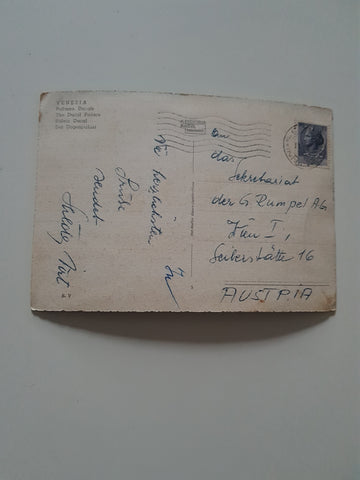 VENEZIA
Palazzo Ducale
The Ducal Palace
Palais Ducal
Der Dogenpalast
Die herzlichsten
Grüße
sendet
An
das
Sekretariat
der G. Rumpel AG.
Wien I,
Seilerstätte 16
AUSTRIA